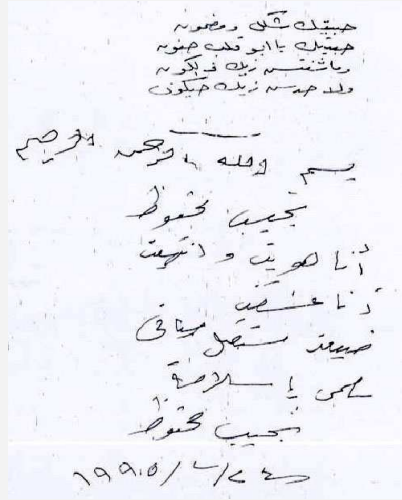 حبيتك شكل ومضمون
حبيتك يا ابو قلب حنون
وماشفتش زيك فى الكون
ولا حدش زيك حيكون
بسم الله الرحمن الرحيم
نجيب محفوظ
أنا هويت وانتهيت
أنا عشقت
ضيعت مستقبل حياتى
سلمى يا سلامة
نجيب محفوظ
١٩٩٥/